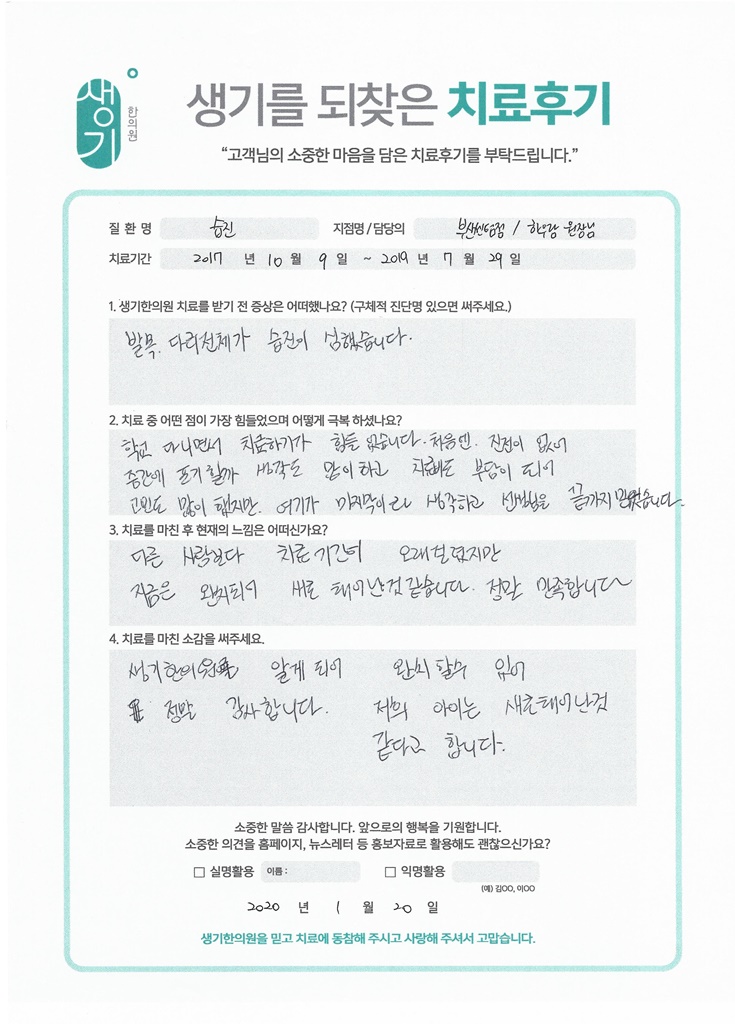 생기
한의원
생기를 되찾은 치료후기
“고객님의 소중한 마음을 담은 치료후기를 부탁드립니다.”
질 환 명 습진 지점명 / 담당의 부산센텀점 / 한우람 원장님
치료기간 2017 년 10 월 9 일 ~ 2019 년 7 월 29 일
1. 생기한의원 치료를 받기 전 증상은 어떠했나요? (구체적 진단명 있으면 써주세요.)
발목, 다리전체가 습진이 심했습니다.
2. 치료 중 어떤 점이 가장 힘들었으며 어떻게 극복 하셨나요?
학교 다니면서 치료하기가 힘들었습니다. 처음엔. 진전이 없어
중간에 포기할까 생각도 많이하고 치료비도 부담이 되어
고민도 많이 했지만. 여기가 마지막이라 생각하고 선생님을 끝까지 믿었습니다.
3. 치료를 마친 후 현재의 느낌은 어떠신가요?
다른 사람보다 치료기간이 오래걸렸지만
지금은 완치되어 새로 태어난것 같습니다. 정말 만족합니다~
4. 치료를 마친 소감을 써주세요.
생기한의원 알게되어 완치할수 있어
정말 감사합니다. 저희 아이는 새로태어난것
같다고 합니다.
소중한 말씀 감사합니다. 앞으로의 행복을 기원합니다.
소중한 의견을 홈페이지, 뉴스레터 등 홍보자료로 활용해도 괜찮으신가요?
실명활용 이름 : 익명활용
(예) 김OO, 이OO
2020 년 1 월 20 일
생기한의원을 믿고 치료에 동참해 주시고 사랑해 주셔서 고맙습니다.